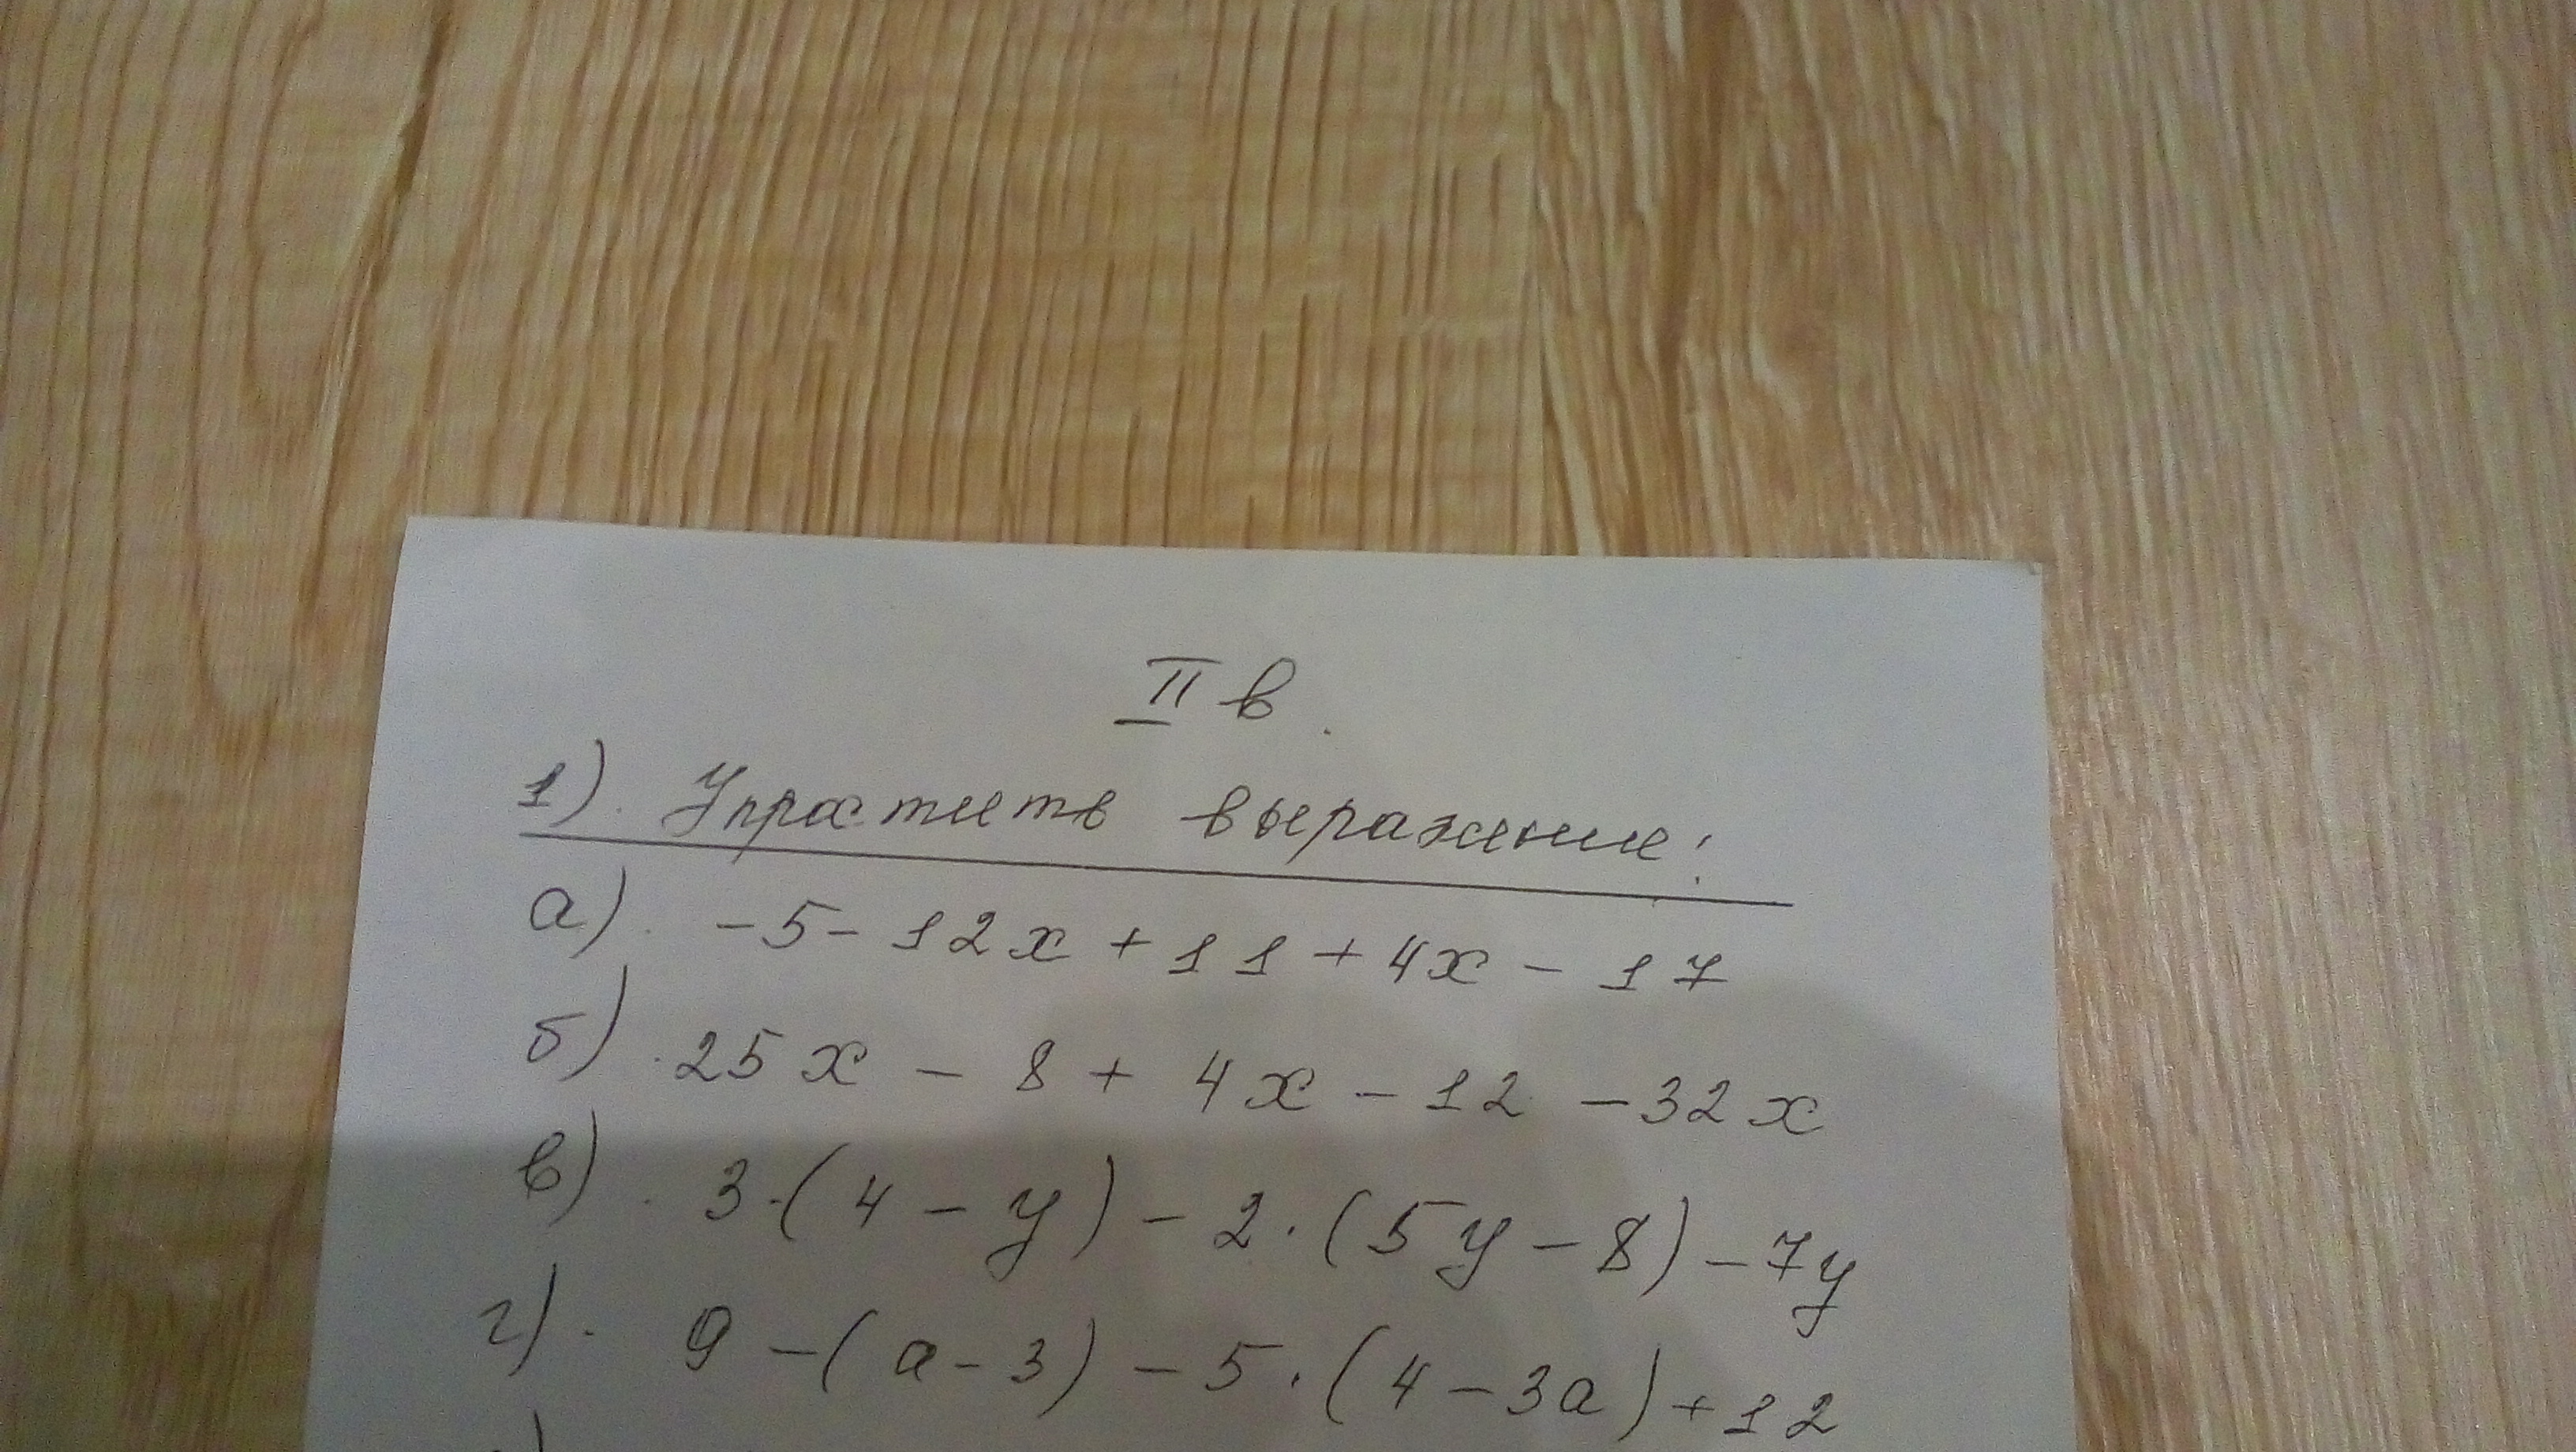 II в.
1). Упростить выражение:
а). -5 - 12x + 11 + 4x - 17
б). 25x - 8 + 4x - 12 - 32x
в). 3·(4 - y) - 2·(5y - 8) - 7y
г). 9 - (a - 3) - 5·(4 - 3a) + 12